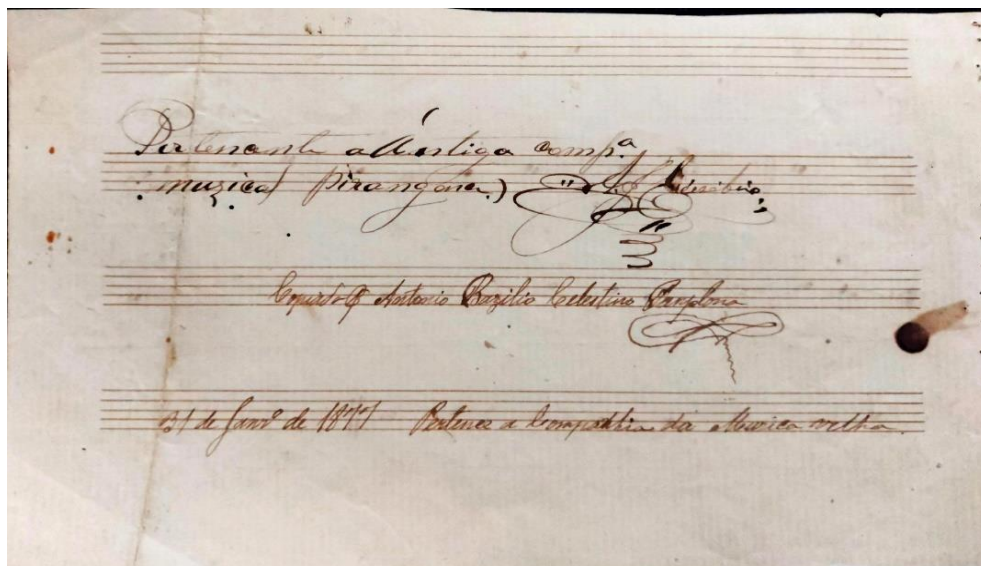 Pertencente a Antiga comp.ª
muzical pirangana)
Copiado p Antonio Bazilio Celestino Pamplona
31 de Janrº de 1877 Pertence a Companhia da Muzica velha